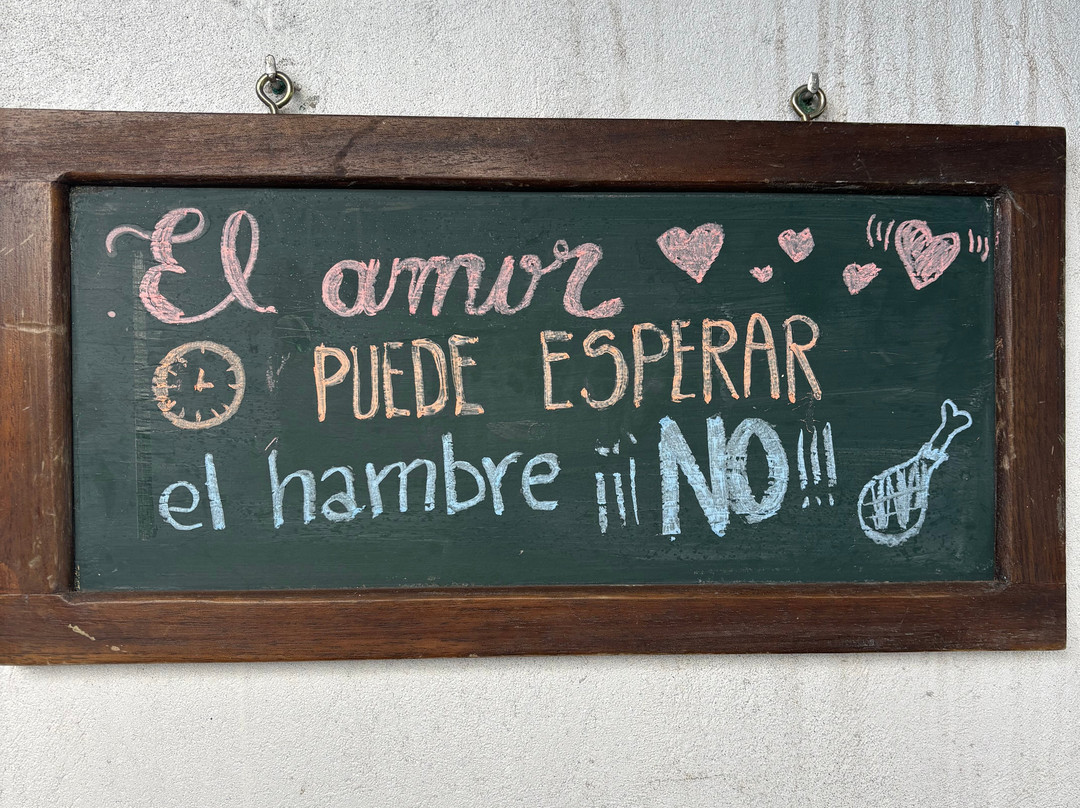 El amor
PUEDE ESPERAR
el hambre ¡¡¡NO!!!